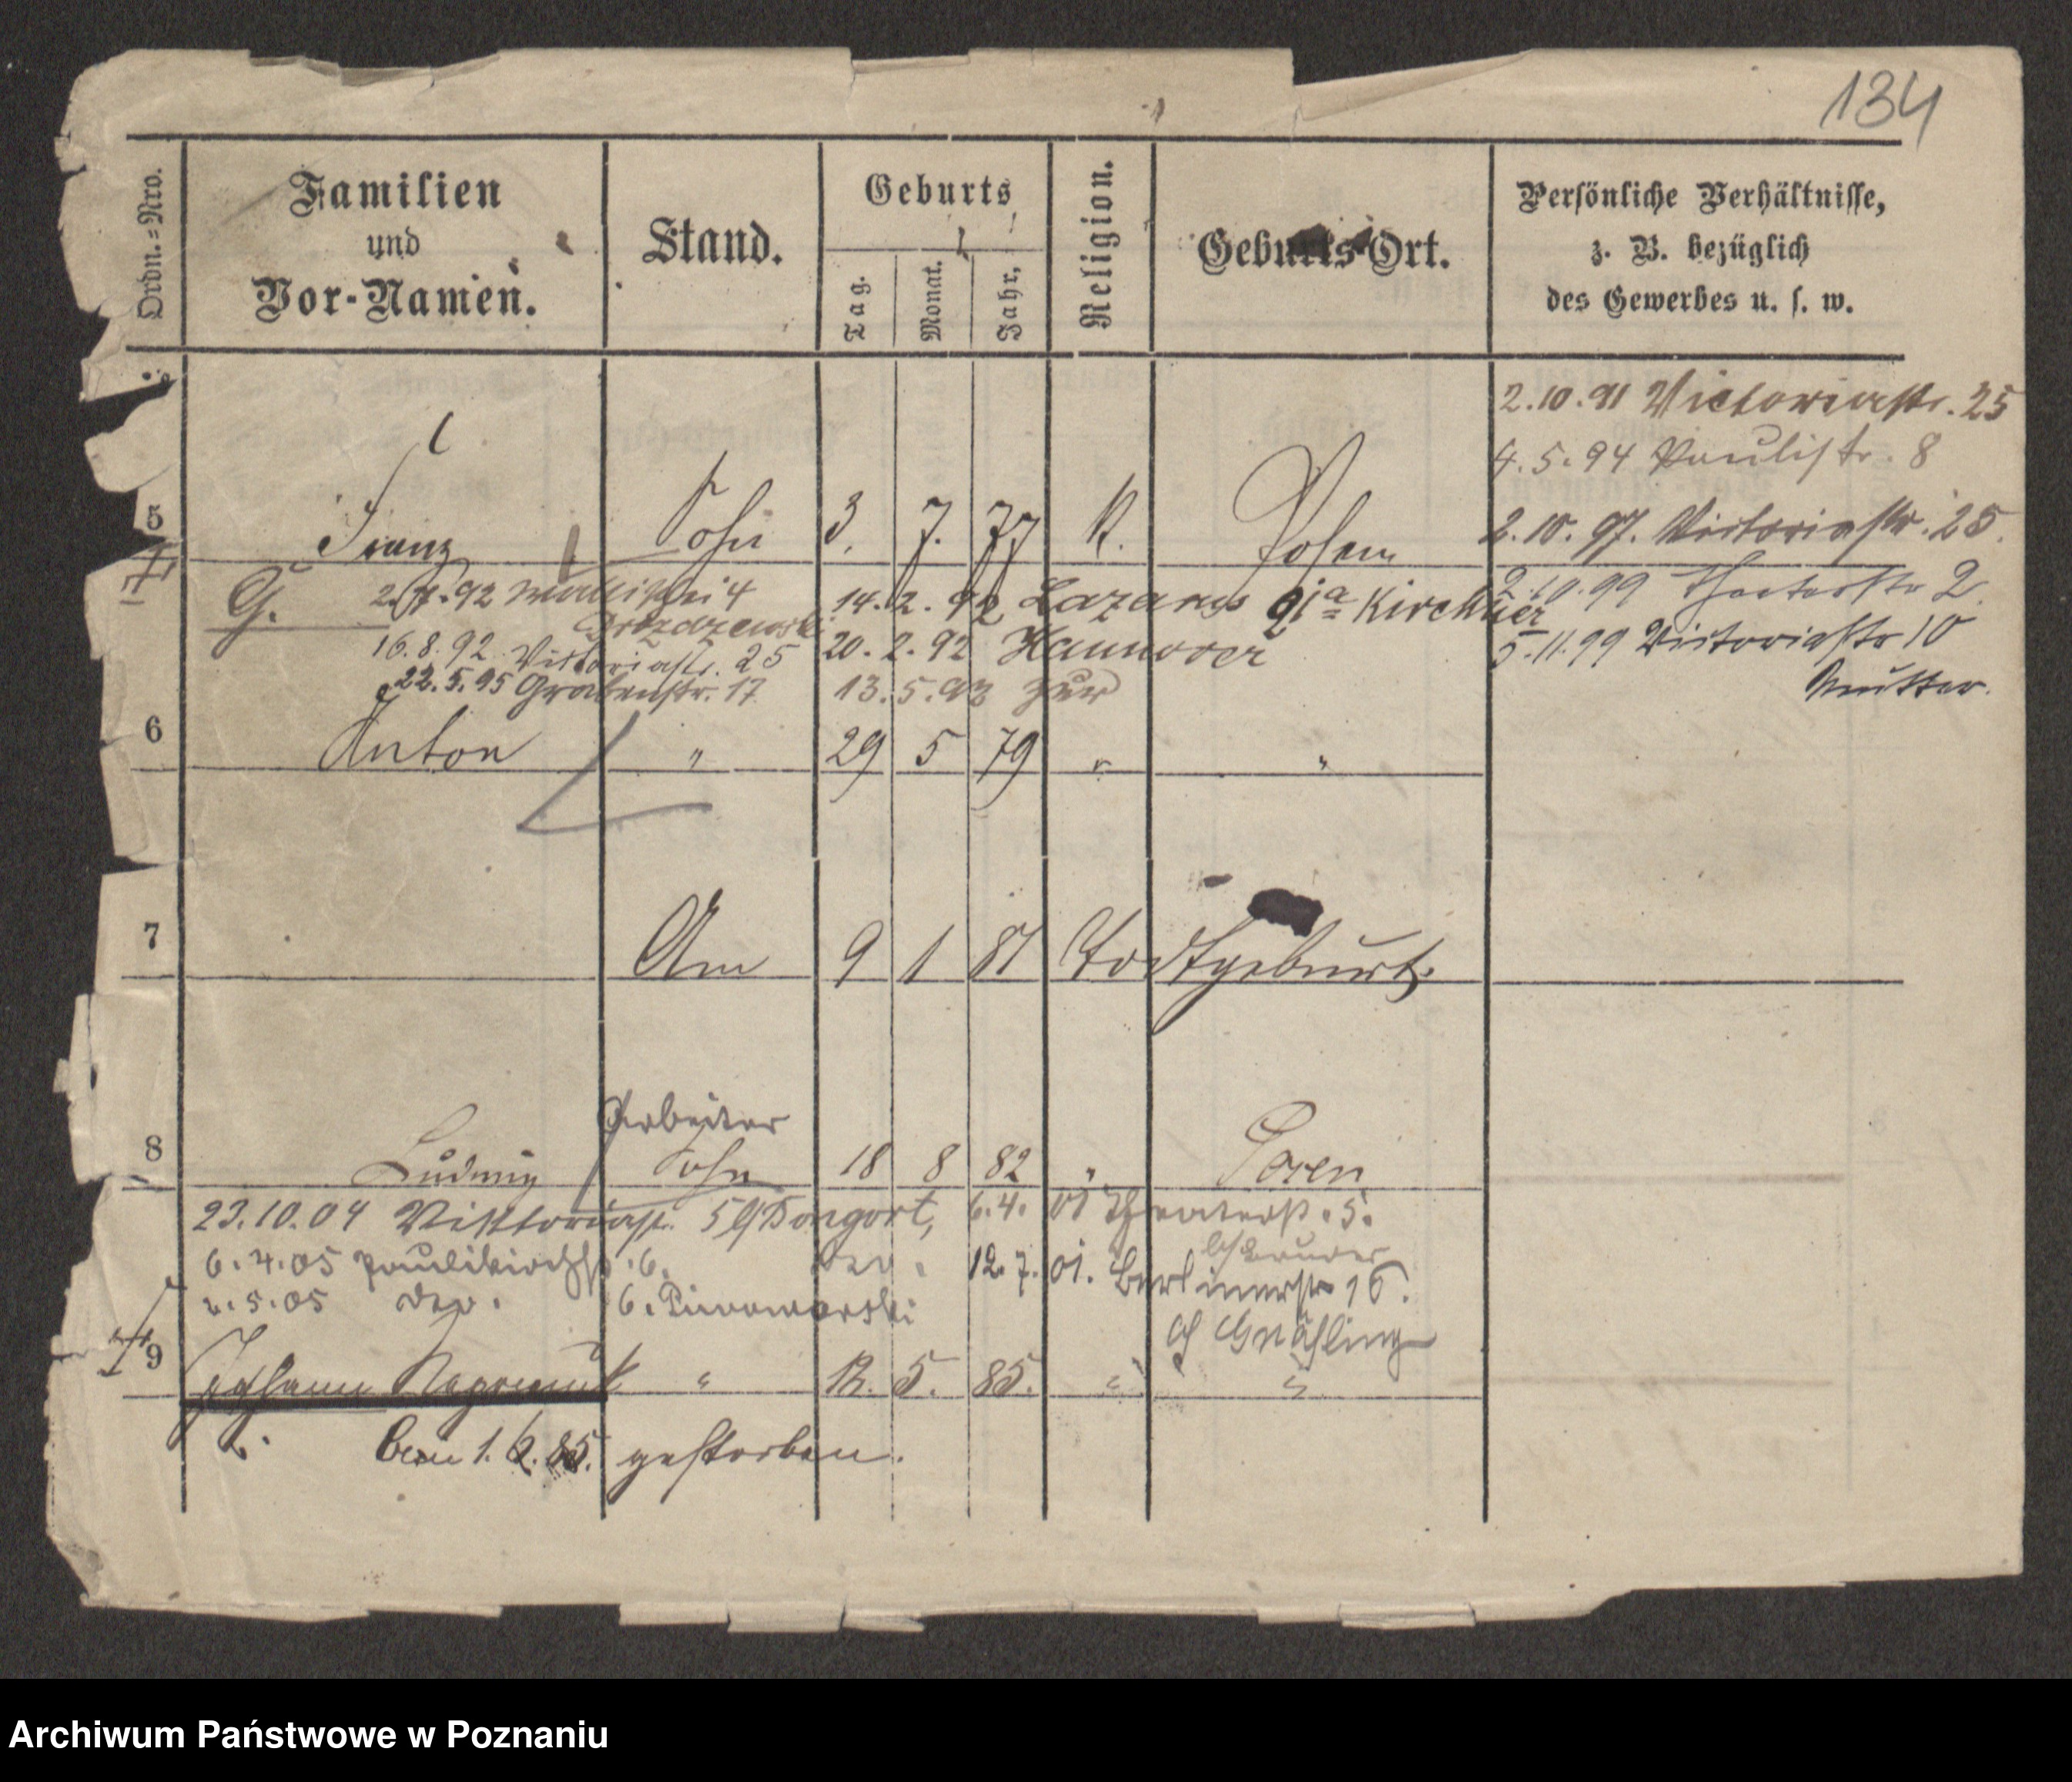 134
Ordn.=Nro.
Familien
und
Vor-Namen.
Stand.
Geburts
Tag.
Monat.
Jahr.
Religion.
Geburts-Ort.
Persönliche Verhältnisse,
z. B. bezüglich
des Gewerbes u. s. w.
2.10.91 Victoriastr. 25
4.5.94 Paulistr. 8
5 Franz Sohn 3. 7. 77 K. Posen
2.10.97. Victoriastr. 25.
G. 2.7.92 Wallischei 4
14.2.92 Lazarus Kirchner
2.10.99 Theaterstr 2
16.8.92 Victoriastr. 25
20.2.92 Hannover
5.11.99 Victoriastr 10
Mutter.
22.5.95 Grabenstr. 17
13.5.93 zur
6 Anton " 29 5 79 " "
7 Am 9 1 81 Todtgeburt.
Arbeiter
8 Ludwig Sohn 18 8 82 " Posen
23.10.04 Viktoriastr. 5 6.4.01 Theaterstr. 5.
b/Bruder
6.4.05 Paulikirchstr. 6. 12.7.01. Berlinerstr 16.
2.5.05 6. Piwowarski
9 Johann " 12. 5. 85. " "
1. 85. gestorben.
Archiwum Państwowe w Poznaniu